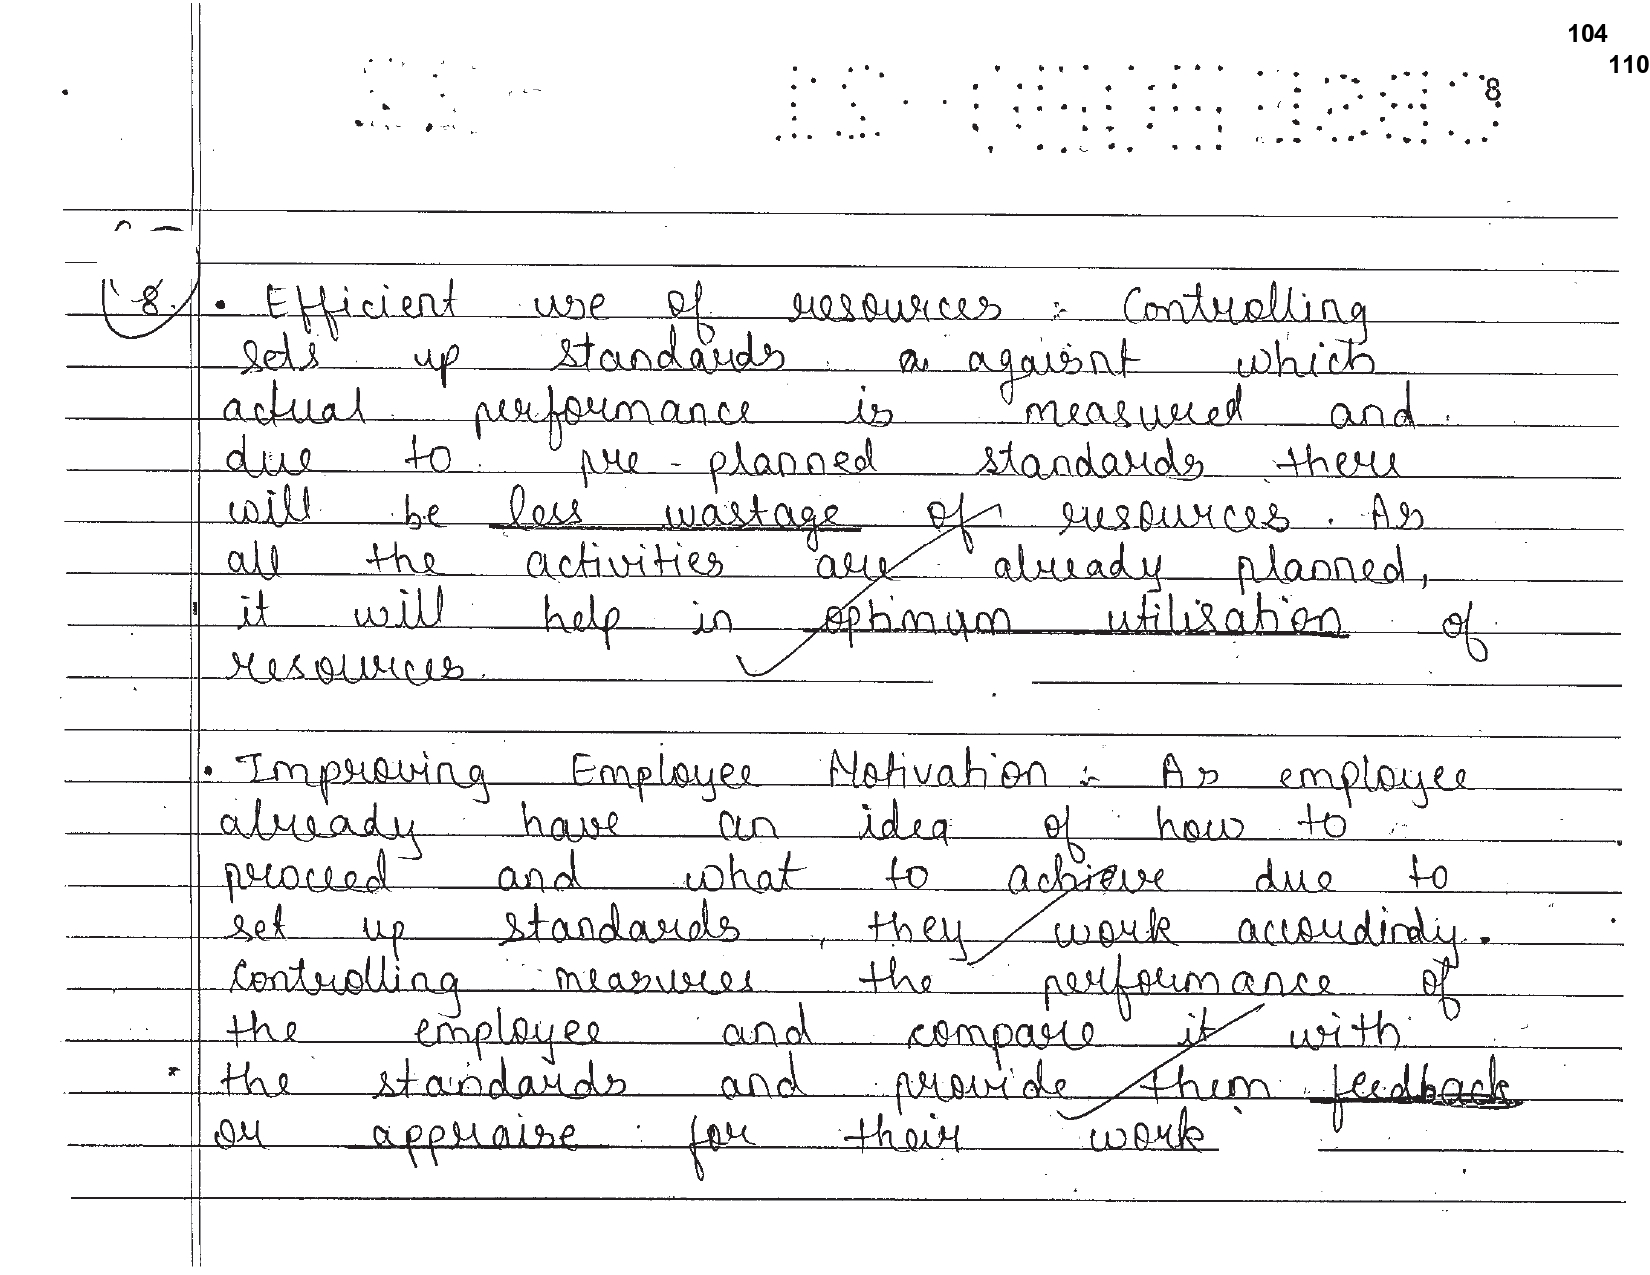 104
110
8
8. • Efficient use of resources :- Controlling
sets up standards a agaisnt which
actual performance is measured and
due to pre-planned standards there
will be less wastage of resources. As
all the activities are already planned,
it will help in optimum utilisation of
resources.
• Improving Employee Motivation :- As employee
already have an idea of how to
proceed and what to achieve due to
set up standards, they work accordindy.
Controlling measures the performance of
the employee and compare it with
the standards and provide them feedback
or appraise for their work